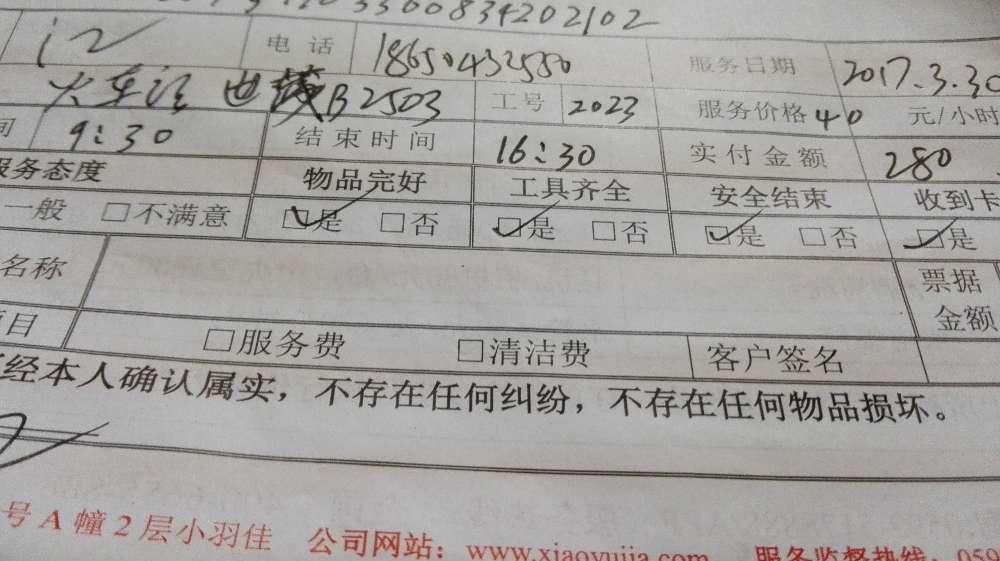 3300834202102
电话 18650432580 服务日期 2017.3.30
B2503 工号 2023 服务价格 40 元/小时
间 9:30 结束时间 16:30 实付金额 280
服务态度 物品完好 工具齐全 安全结束 收到卡
一般 □不满意 ☑是 □否 ☑是 □否 ☑是 □否 ☑是
名称 票据
金额
项目 □服务费 □清洁费 客户签名
经本人确认属实，不存在任何纠纷，不存在任何物品损坏。
号A幢2层小羽佳 公司网站：www.xiaoyujia.com 服务监督热线：059